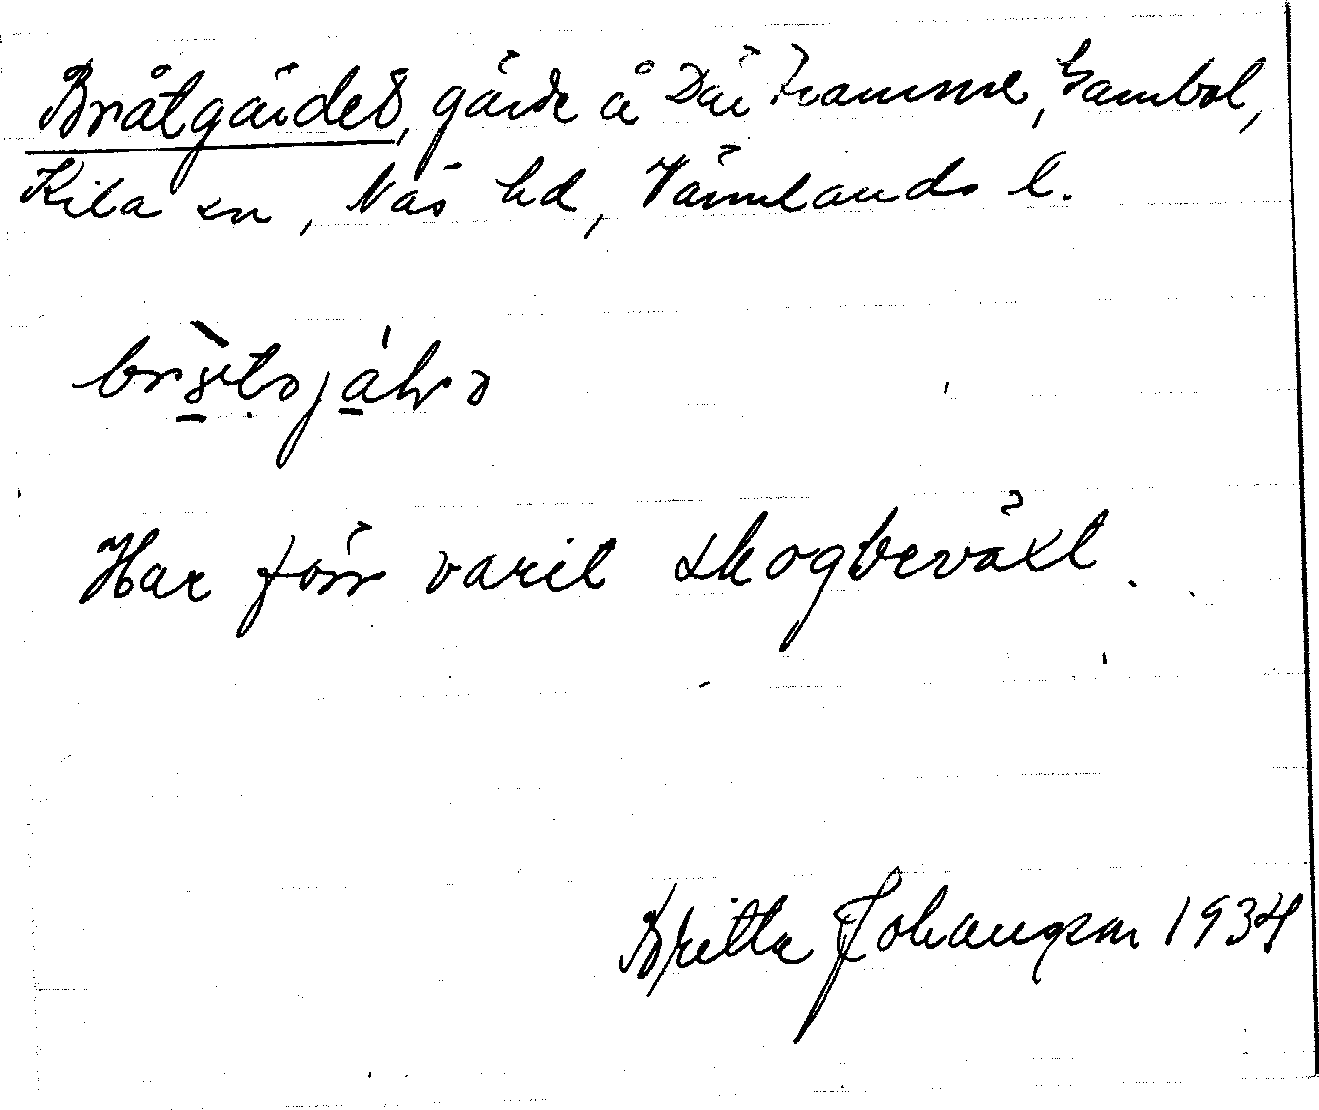 Bråtgärdet, gärde å Där Framme, Gambol,
Kila sn, Näs hd, Värmlands l.
Har förr varit skogbeväxt.
Britta Johansson 1934